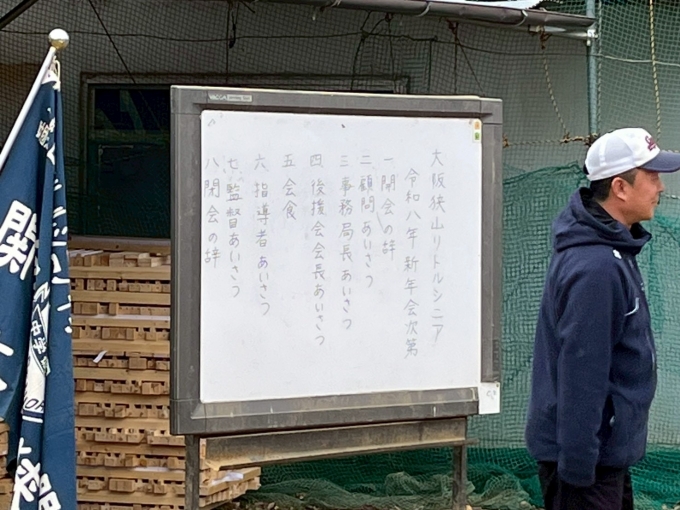 大阪狭山リトルシニア
令和八年新年会次第
一開会の辞
二顧問あいさつ
三事務局長あいさつ
四後援会会長あいさつ
五会食
六指導者あいさつ
七監督あいさつ
八閉会の辞
関